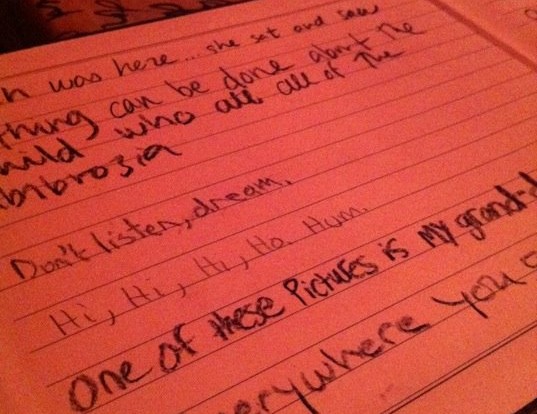 n was here... she sat and saw
thing can be done about the
hild who ate all of the
mbrosia
Don't listen, dream.
Hi, Hi, Hi, Ho. Hum.
One of these Pictures is My grand-d
erywhere you